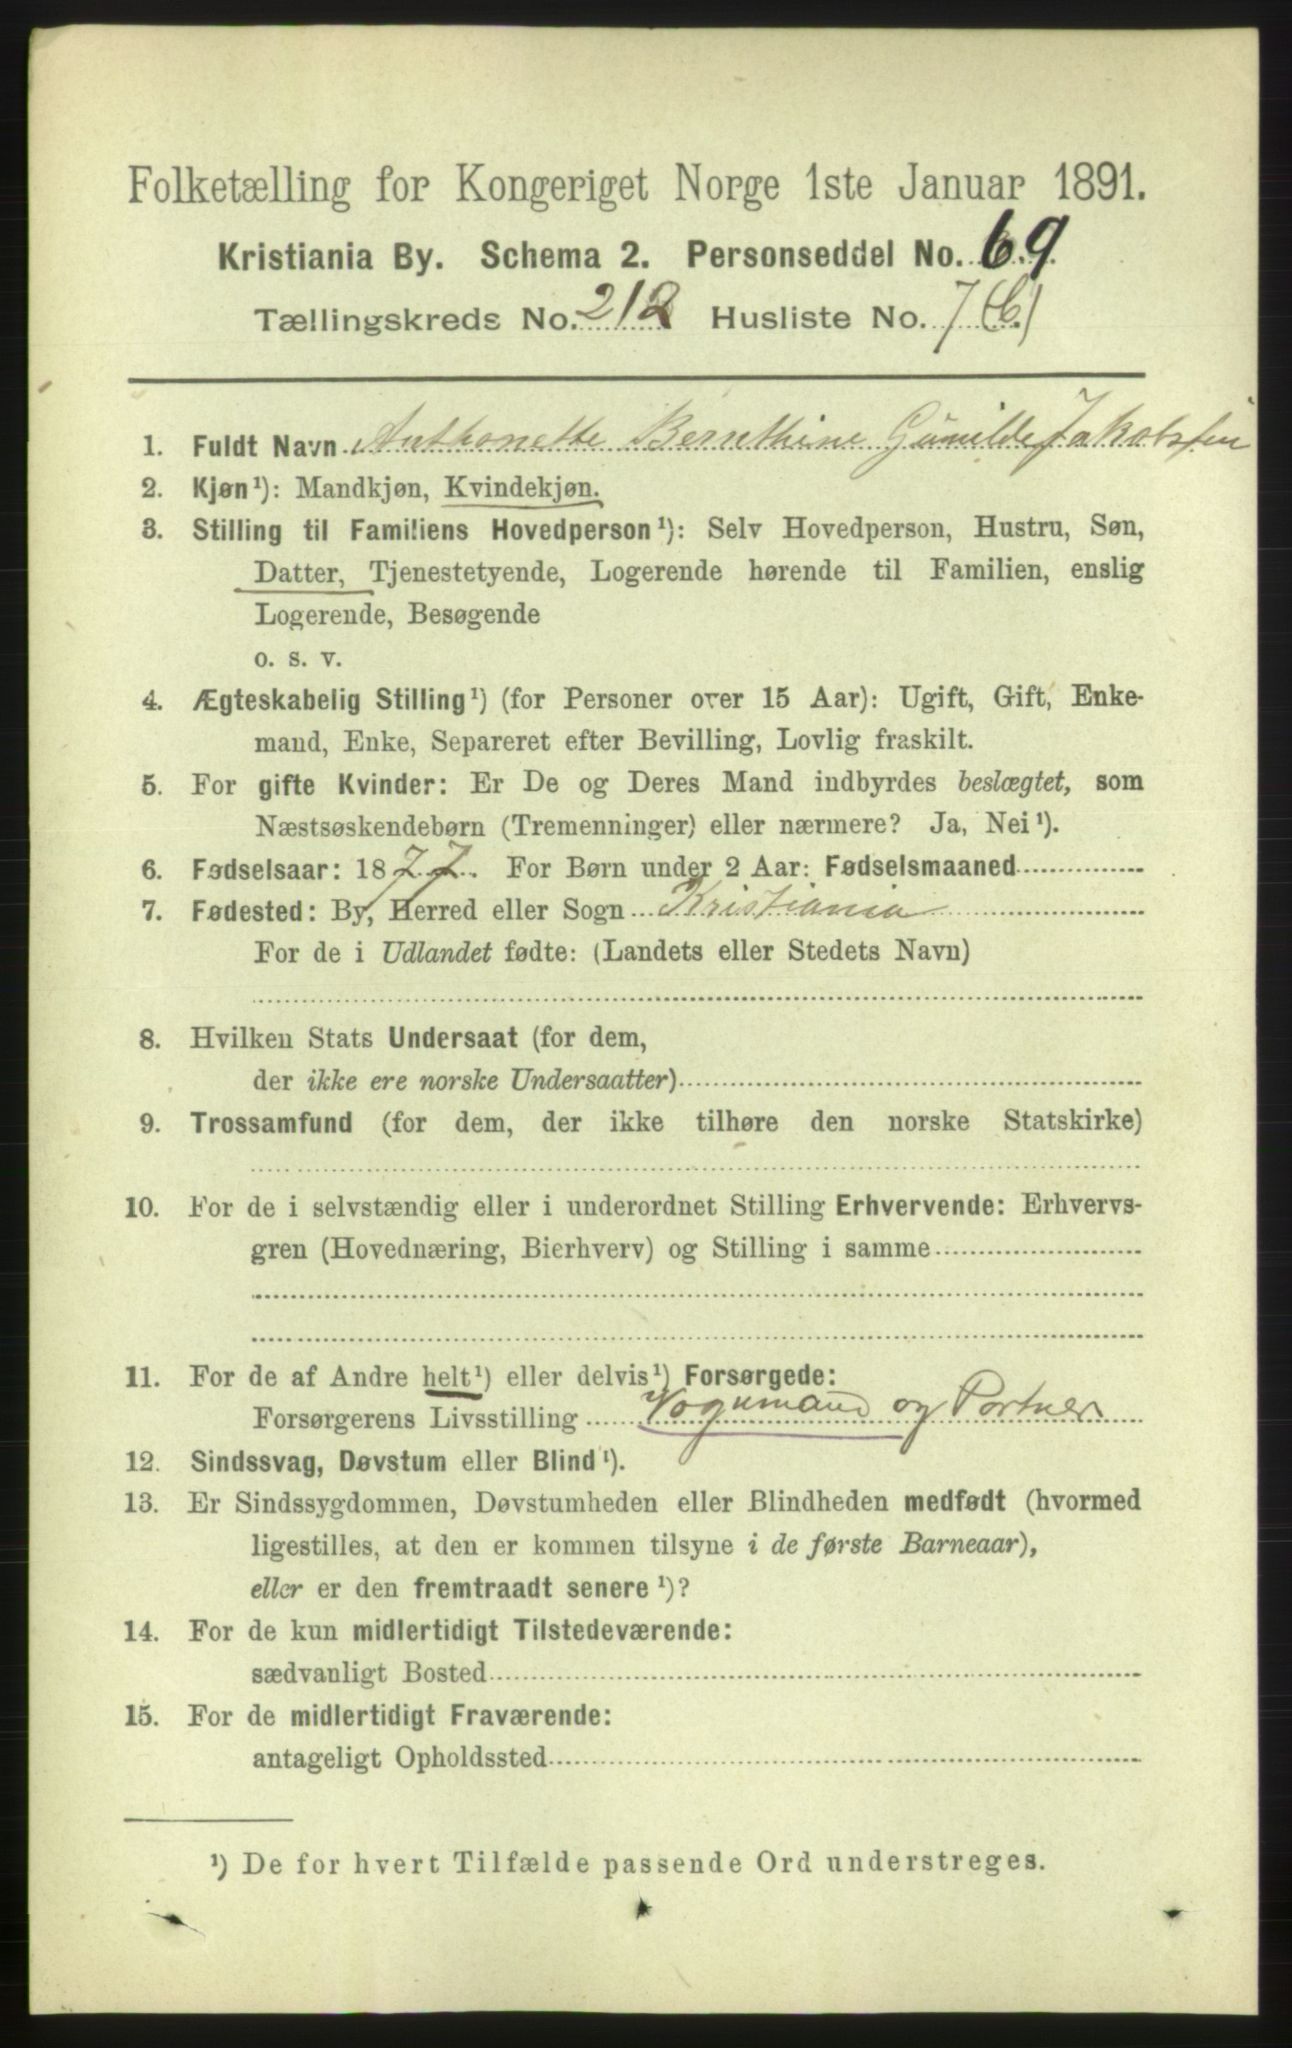 Folketælling for Kongeriget Norge 1ste Januar 1891.
Kristiania By. Schema 2. Personseddel No. 69
Tællingskreds No. 212 Husliste No. 7 (C.)
1. Fuldt Navn Anthonette Bernthine Gunilde Jakobsen
2. Kjøn¹): Mandkjøn, Kvindekjøn.
3. Stilling til Familiens Hovedperson¹): Selv Hovedperson, Hustru, Søn,
Datter, Tjenestetyende, Logerende hørende til Familien, enslig
Logerende, Besøgende
o. s. v.
4. Ægteskabelig Stilling¹) (for Personer over 15 Aar): Ugift, Gift, Enke-
mand, Enke, Separeret efter Bevilling, Lovlig fraskilt.
5. For gifte Kvinder: Er De og Deres Mand indbyrdes beslægtet, som
Næstsøskendebørn (Tremenninger) eller nærmere? Ja, Nei¹).
6. Fødselsaar: 1877. For Børn under 2 Aar: Fødselsmaaned
7. Fødested: By, Herred eller Sogn Kristiania
For de i Udlandet fødte: (Landets eller Stedets Navn)
8. Hvilken Stats Undersaat (for dem,
der ikke ere norske Undersaatter)
9. Trossamfund (for dem, der ikke tilhøre den norske Statskirke)
10. For de i selvstændig eller i underordnet Stilling Erhvervende: Erhvervs-
gren (Hovednæring, Bierhverv) og Stilling i samme
11. For de af Andre helt¹) eller delvis¹) Forsørgede:
Forsørgerens Livsstilling Vognmand og Portner
12. Sindssvag, Døvstum eller Blind¹).
13. Er Sindssygdommen, Døvstumheden eller Blindheden medfødt (hvormed
ligestilles, at den er kommen tilsyne i de første Barneaar),
eller er den fremtraadt senere¹)?
14. For de kun midlertidigt Tilstedeværende:
sædvanligt Bosted
15. For de midlertidigt Fraværende:
antageligt Opholdssted
¹) De for hvert Tilfælde passende Ord understreges.